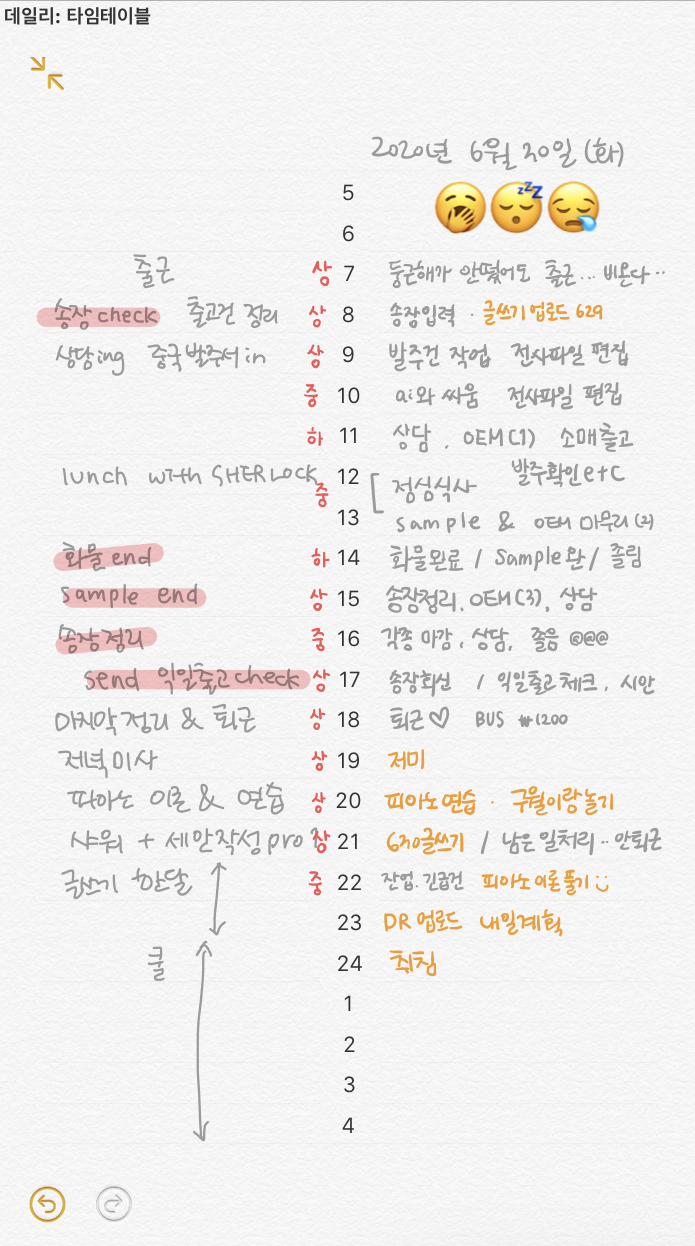 데일리: 타임테이블
2020년 6월 30일 (화)
5
6
출근 상 7 둥근해가 안떴어도 출근... 비온다..
송장 check 출고건 정리 상 8 송장입력 · 글쓰기 업로드 629
상담ing 중국발주서 in 상 9 발주건 작업 전사파일 편집
중 10 ai와 싸움 전사파일 편집
하 11 상담 . OEM(1) 소매출고
lunch with SHERLOCK 중 12 [ 점심식사 발주확인etc
13 sample & OEM 마무리(2)
화물 end 하 14 화물완료 / Sample완 / 졸림
sample end 상 15 송장정리. OEM(3), 상담
송장정리 중 16 각종 마감, 상담, 졸음 @@@
send 익일출고check 상 17 송장회신 / 익일출고체크, 시안
마지막정리 & 퇴근 상 18 퇴근♡ BUS ₩1200
저녁미사 상 19 저미
피아노 이론 & 연습 상 20 피아노연습 · 구월이랑놀기
샤워 + 세안작성 pro 상 21 630글쓰기 / 남은일처리.. 안퇴근
글쓰기 한달 중 22 잔업. 긴급건 피아노이론풀기
23 DR 업로드 내일계획
쿨 24 취침
1
2
3
4